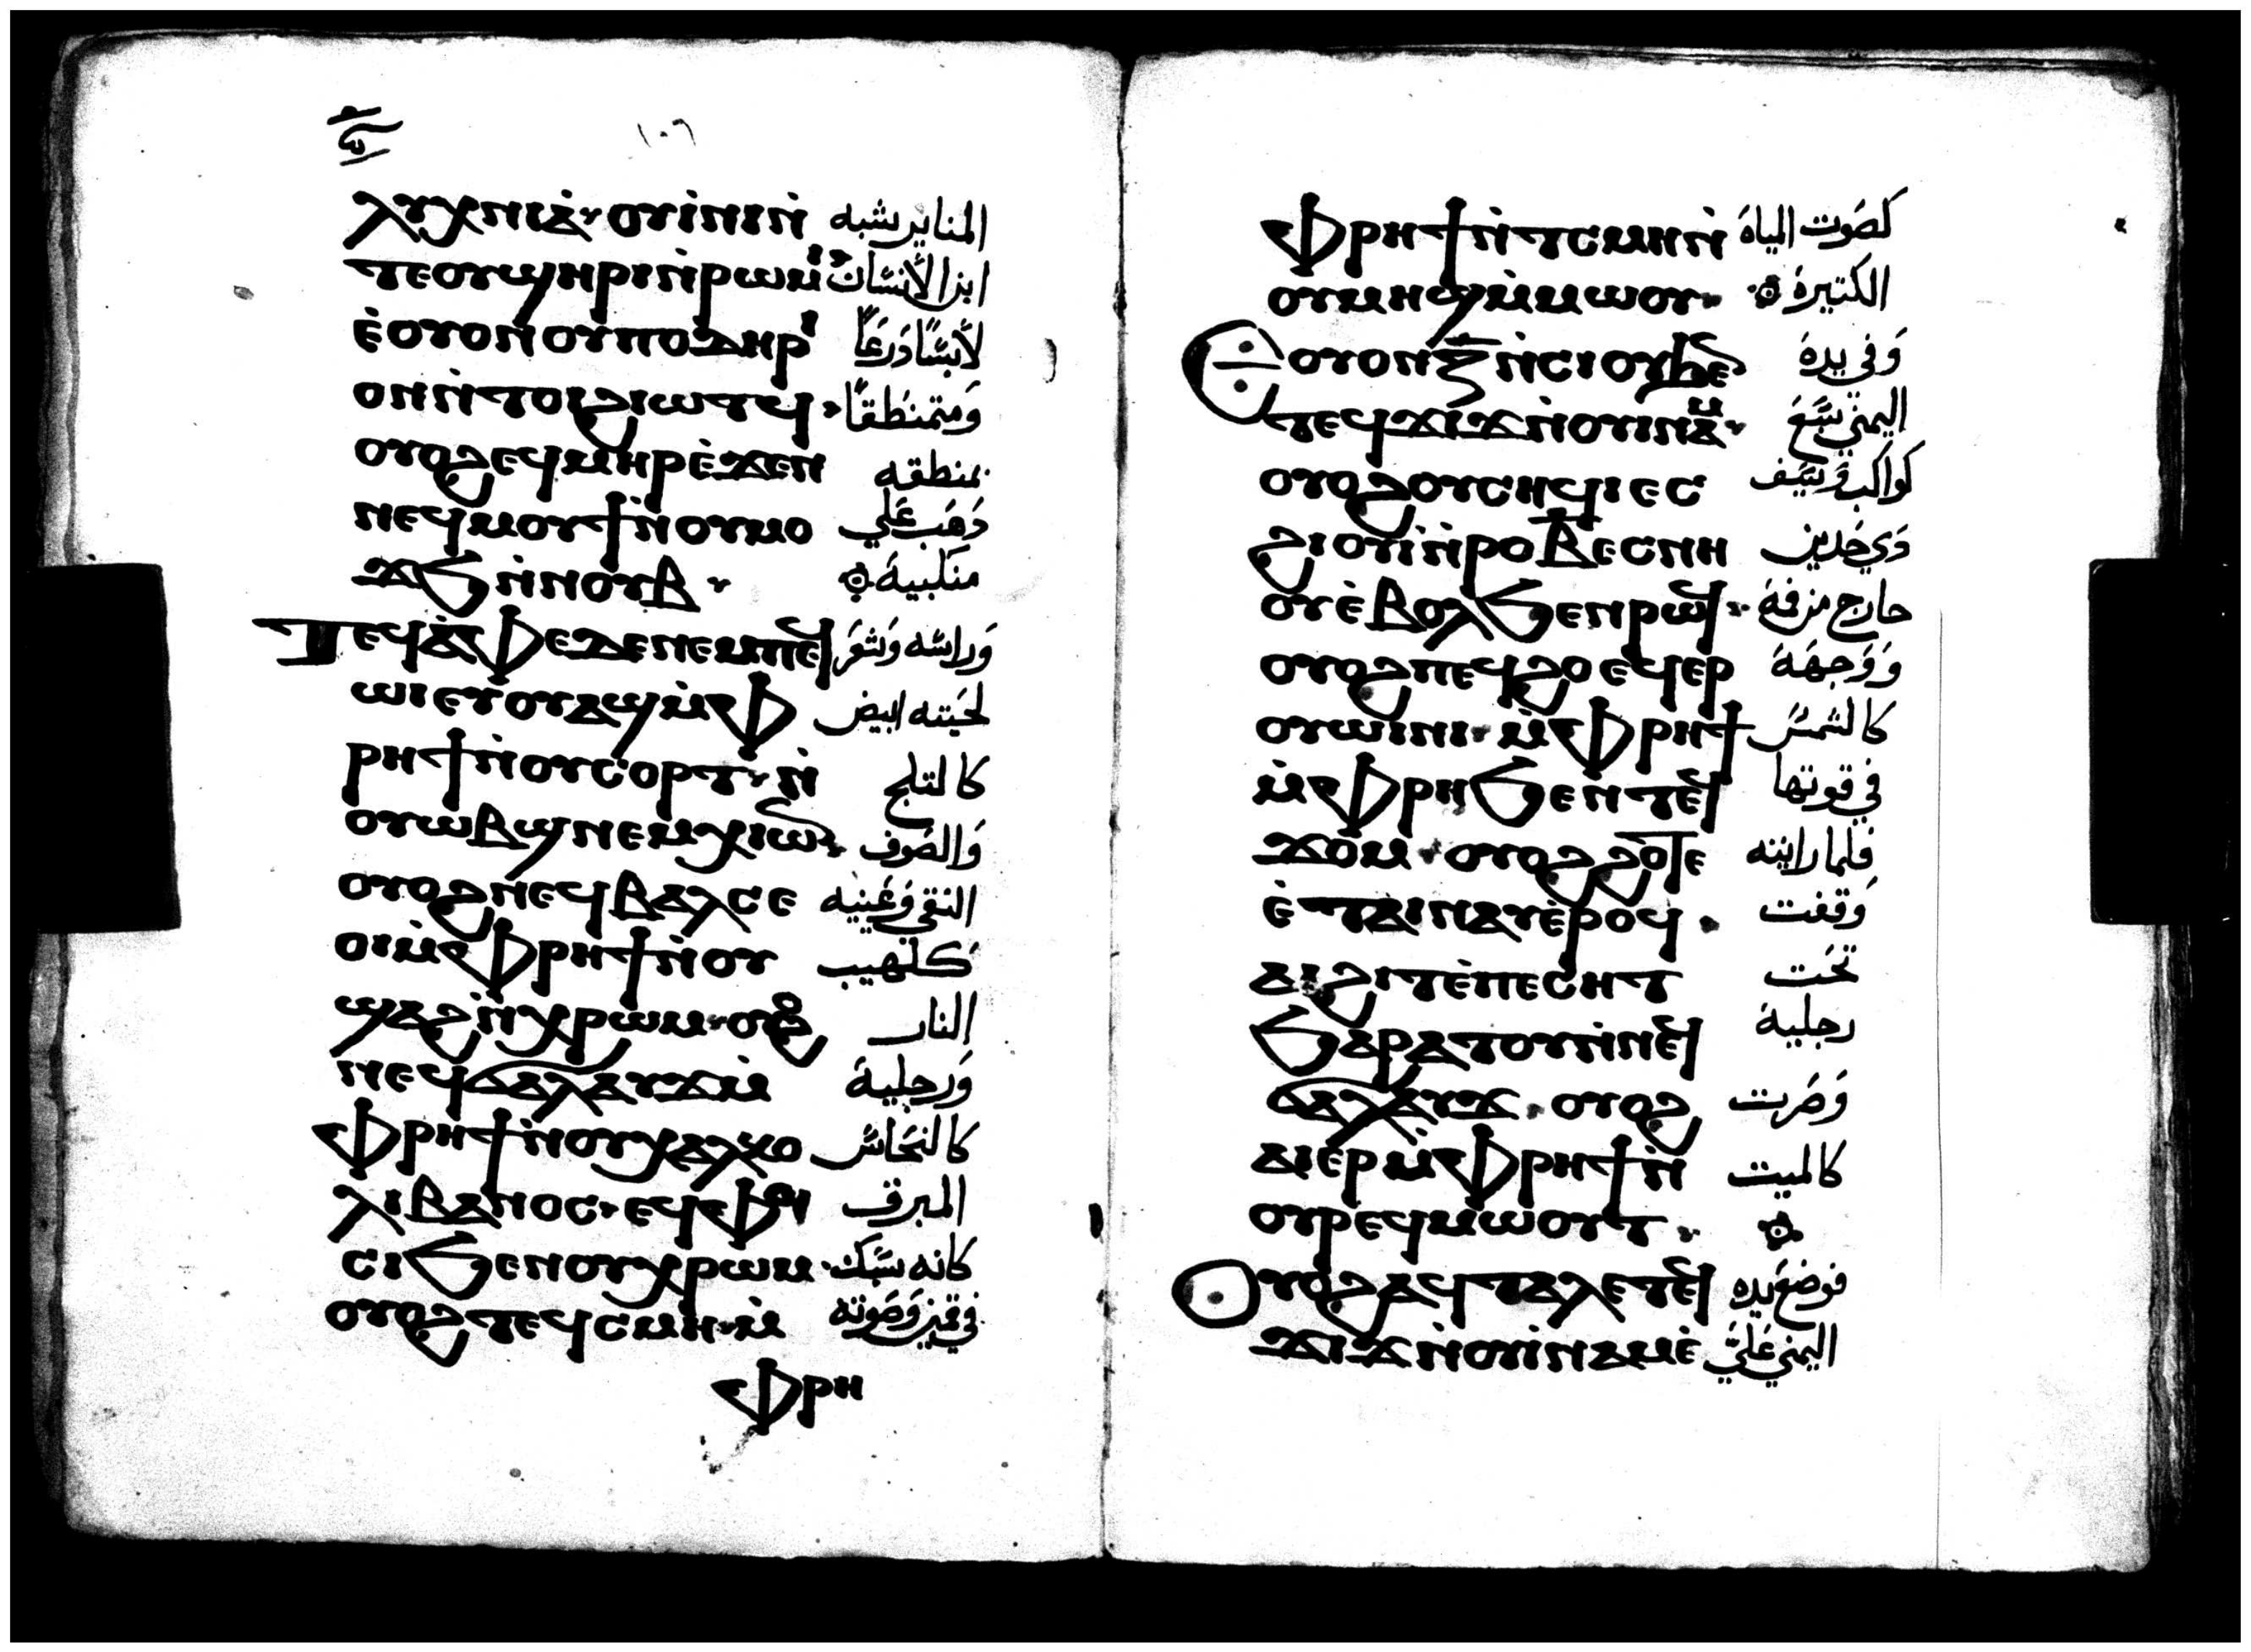 ١٠٦
ⲗⲩⲭⲛⲓⲁ̀· ⲟⲩⲓ̀ⲛⲓⲛ̀ المناير يشبه
ⲧⲉⲟⲩϣⲏⲣⲓⲛ̀ⲣⲱⲙ̀ ابن الأنسان
ⲉ̀ⲟⲩⲟⲛ ⲟⲩⲡⲟⲇⲏⲣ لأبسًا دَرعًا
ⲟⲛⲛ̀ⲧⲟⲓϩⲓⲱⲧϥ· وَمتمنطقًا
ⲟⲩⲟϩ ⲉϥⲙⲏⲣ ⲉ̀ϫⲉⲛ بمنطقه
ⲛⲉϥⲙⲟⲩϯ ⲛ̀ⲟⲩⲙⲟ دَهَب عَلي
ϫϧ ⲛ̀ⲛⲟⲩⲃ· منكبيه
ⲧⲉϥⲁ̀ⲫⲉ ⲇⲉ ⲛⲉⲙ ⲡⲉϥ وَراسه وَشعَر
ϥⲱⲓ ⲉⲩⲟⲩⲁϣ ⲙ̀ⲫ لحَيته ابيض
ⲣⲏϯ ⲛ̀ⲟⲩⲥⲟⲣⲧ· ⲛ̀ كالتلج
ⲟⲩⲱⲃϣ ⲛⲉⲙ ⲭⲓⲱⲛ· وَالصَوف
ⲟⲩⲟϩ ⲛⲉϥⲃⲁⲗ ⲥⲉ النقي وَعَينيه
ⲟⲓ ⲙ̀ⲫⲣⲏϯ ⲛ̀ⲟⲩ كَلهيب
ϣⲁϩ ⲛ̀ⲭⲣⲱⲙ· ⲟⲩⲟϩ النار
ⲛⲉϥϭⲁⲗⲁⲩϫ ⲙ̀ وَرجليه
ⲫⲣⲏϯ ⲛ̀ⲟⲩⲭⲁⲗⲕⲟ كالنحَاس
ⲗⲓⲃⲁⲛⲟⲥ· ⲉϥⲫⲟ المبرق
ⲥⲓ ϧⲉⲛ ⲟⲩⲭⲣⲱⲙ· كانه سَبك
ⲟⲩⲟϩ ⲧⲉϥⲥⲙⲏ· ⲙ̀ في قمين وَصَوته
ⲫⲣⲏ
ⲫⲣⲏϯ ⲛ̀ⲧⲥⲙⲏ ⲛ̀ كصَوت المياة
ⲟⲩⲙⲏϣ ⲙ̀ⲙⲱⲟⲩ· الكتيرة
ⲉⲟⲩⲟⲛ ⲍ̅ ⲛ̀ⲥⲓⲟⲩ ϧⲉⲛ وَفي يده
ⲧⲉϥϫⲓϫ ⲛ̀ⲟⲩⲓⲛⲁⲙ· اليمني سَبعَ
ⲟⲩⲟϩ ⲟⲩⲥⲏϥⲓ ⲉⲥ كواكب وَسَيف
ϩⲓⲟⲩⲓ̀ ⲛ̀ⲣⲟ ⲃ̅ ⲉⲥⲛⲏ دَي حَدين
ⲟⲩ ⲉ̀ⲃⲟⲗ ϧⲉⲛ ⲣⲱϥ· خارج من فمَه
ⲟⲩⲟϩ ⲡⲉϥϩⲟ ⲉϥⲉⲣ وَوَجهَهَ
ⲟⲩⲱⲓⲛⲓ· ⲙ̀ⲫⲣⲏϯ كالشمس
ⲙ̀ⲫⲣⲏ ϧⲉⲛ ⲧⲉϥ في قوتها
ϫⲟⲙ· ⲟⲩⲟϩ ϩⲟⲧⲉ فلما رايته
ⲉ̀ⲧⲁⲓⲛⲁⲩ ⲉ̀ⲣⲟϥ· وَقعت
ⲁⲓϩⲓⲧ ⲉ̀ⲡⲉⲥⲏⲧ تحَت
ϧⲁⲣⲁⲧⲟⲩ ⲛ̀ⲛⲉϥ رجلية
ϭⲁⲗⲁⲩϫ· ⲟⲩⲟϩ وَصَرت
ⲁⲓⲉⲣ ⲙ̀ⲫⲣⲏϯ ⲛ̀ كالميت
ⲟⲩⲣⲉϥⲙⲱⲟⲩⲧ·
ⲟⲩⲟϩ ⲁϥⲧⲁⲗⲉ ⲧⲉϥ فوضع يده
ϫⲓϫ ⲛ̀ⲟⲩⲓ̀ⲛⲁⲙ ⲉ̀ اليمني عَليَّ